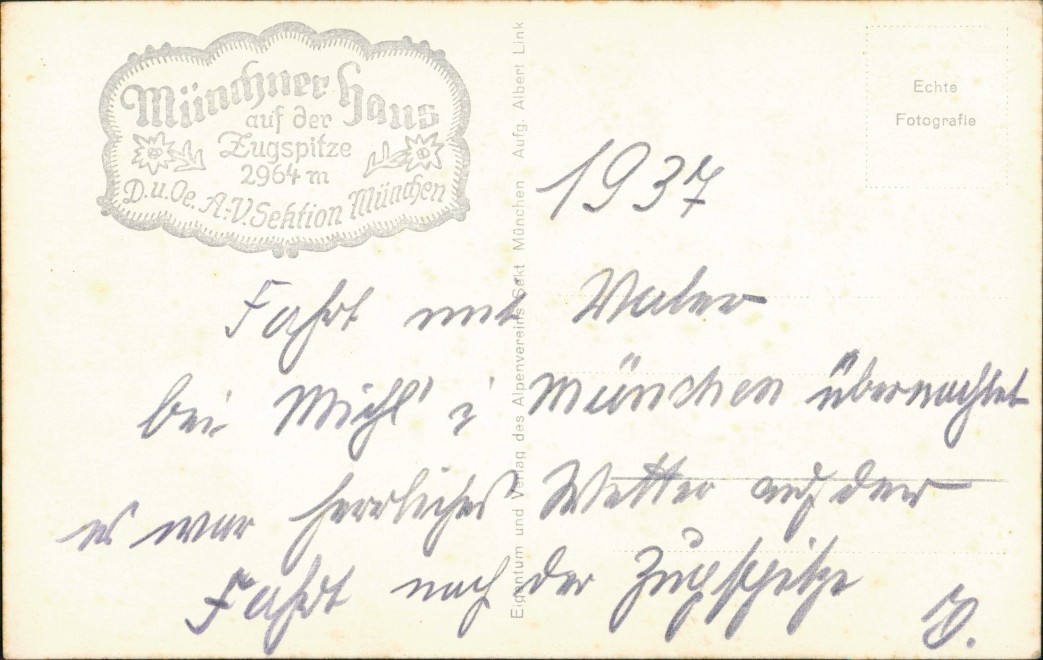 Münchner Haus
auf der
Zugspitze
2964 m
D.u.Oe. A.-V. Sektion München
Eigentum und Verlag des Alpenvereins Sekt München Aufg. Albert Link
Echte
Fotografie
1937
Fahrt mit
bei Michl i München übernachtet
es war herrliches Wetter auf der
Fahrt nach der Zugspitze